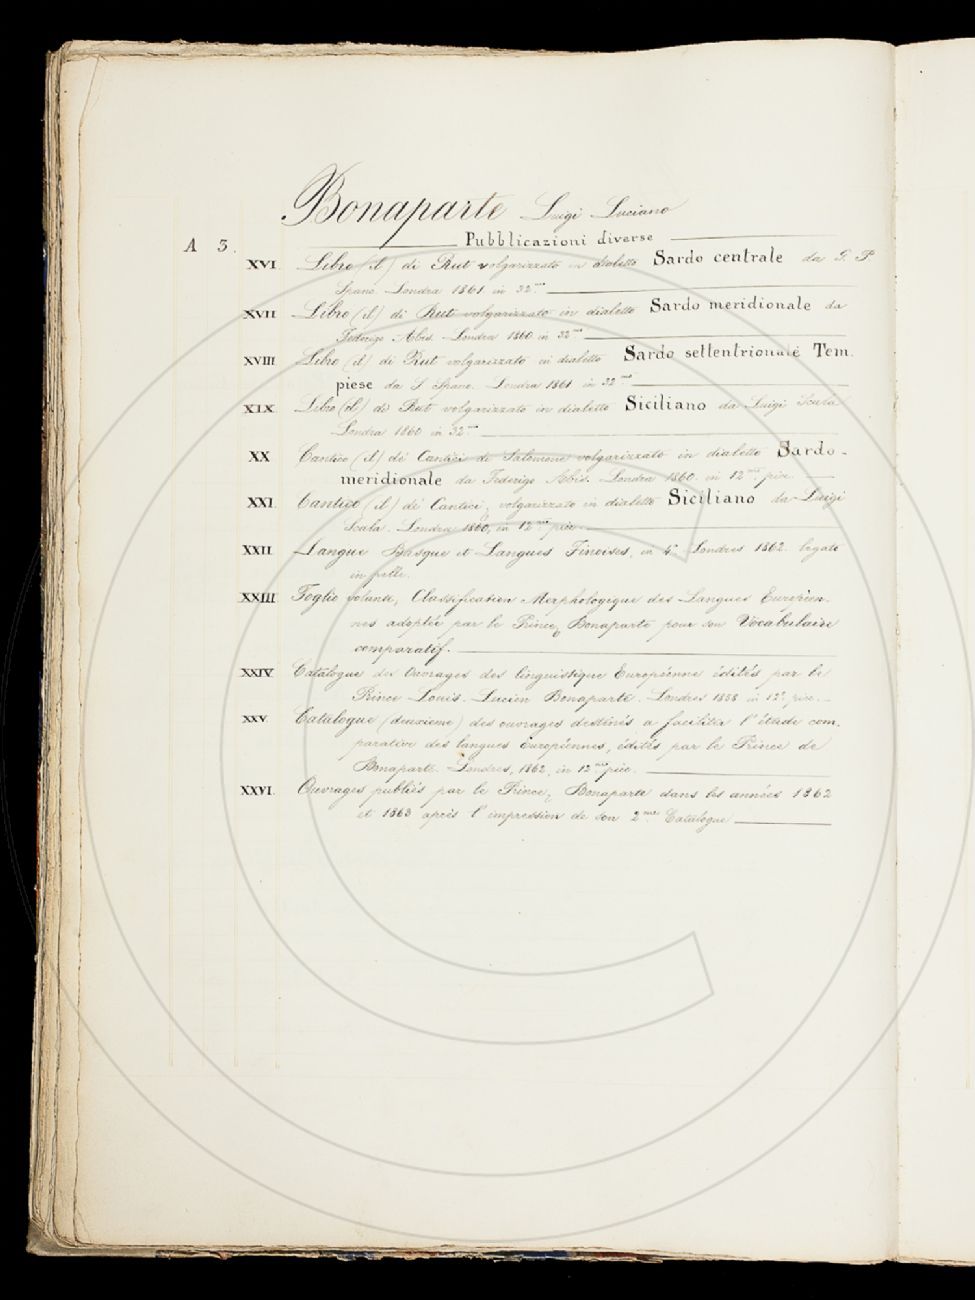 Bonaparte Luigi Luciano
A 3. Pubblicazioni diverse
XVI. Libro (il) di Rut volgarizzato in dialetto Sardo centrale da G. P
Spano. Londra 1861 in 32mo
XVII Libro (il) di Rut volgarizzato in dialetto Sardo meridionale da
Federigo Abis. Londra 1860 in 32mo
XVIII Libro (il) di Rut volgarizzato in dialetto Sardo settentrionale Tem.
piese da Spano. Londra 1861 in 32mo
XIX. Libro (il) di Rut volgarizzato in dialetto Siciliano da Luigi Scala
Londra 1860 in 32mo
XX Cantico (il) de' Cantici di Salomone volgarizzato in dialetto Sardo-
meridionale da Federigo Abis. Londra 1860. in 12mo picc.
XXI. Cantico (il) de' Cantici, volgarizzato in dialetto Siciliano da Luigi
Scala. Londra 1860, in 12mo picc.
XXII. Langue Basque et Langues Finoises, in 4o Londres 1862. legato
in pelle.
XXIII Foglio volante, Classification Morphologique des Langues Europèen-
nes adoptée par le Prince Bonaparte pour son Vocabulaire
comparatif.
XXIV. Catalogue des Ouvrages des linguistique Européenne édités par le
Prince Louis-Lucien Bonaparte. Londres 1858 in 12o picc.
XXV. Catalogue (deuxieme) des ouvrages destinés a faciliter l'étude com.
parative des langues Européennes, édités par le Prince de
Bonaparte. Londres, 1862, in 12mo picc.
XXVI. Ouvrages publiés par le Prince Bonaparte dans les années 1862
et 1863 après l'impression de son 2me Catalogue